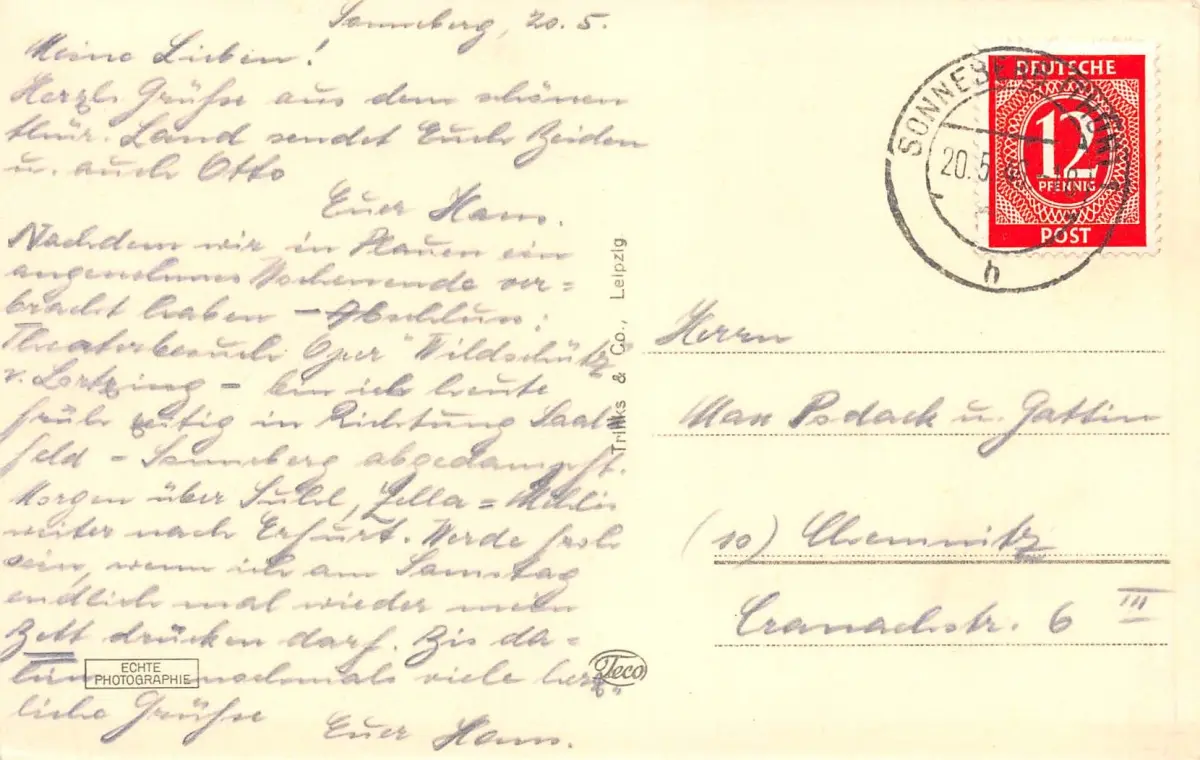 Sonneberg, 20.5.
Meine Lieben!
Herzl. Grüße aus dem schönen
thür. Land sendet Euch Beiden
u. auch Otto
Euer Hans.
Nachdem wir in Plauen ein
angenehmes Wochenende ver=
bracht haben – Abschluss:
Theaterbesuch Oper "Wildschütz"
v. Lortzing – bin ich heute
früh zeitig in Richtung Saal
feld – Sonneberg abgedampft.
Morgen über Suhl, Zella=Mehlis
weiter nach Erfurt. Werde froh
sein, wenn ich am Samstag
endlich mal wieder mein
Bett drücken darf. Bis da=
hin nochmals viele herz=
liche Grüße
Euer Hans.
ECHTE
PHOTOGRAPHIE
Trinks & Co., Leipzig
Teco
DEUTSCHE
12
PFENNIG
POST
SONNEBERG (THÜR)
20.5.
h
Herrn
Max Psdack u. Gattin
(10) Chemnitz
Cranachstr. 6 III